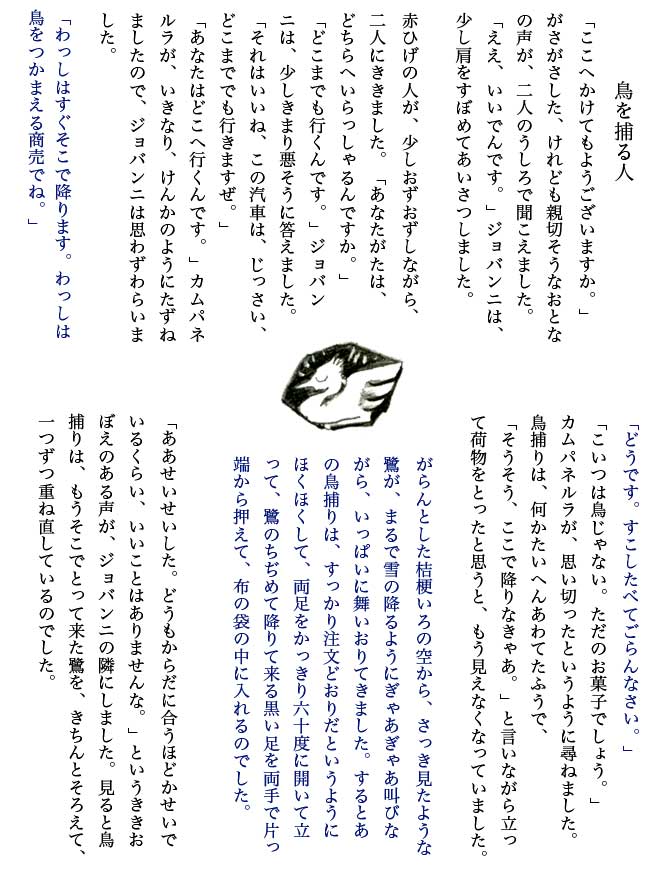 鳥を捕る人
「ここへかけてもようございますか。」
がさがさした、けれども親切そうなおとな
の声が、二人のうしろで聞こえました。
「ええ、いいでんです。」ジョバンニは、
少し肩をすぼめてあいさつしました。
赤ひげの人が、少しおずおずしながら、
二人にききました。「あなたがたは、
どちらへいらっしゃるんですか。」
「どこまでも行くんです。」ジョバン
ニは、少しきまり悪そうに答えました。
「それはいいね、この汽車は、じっさい、
どこまででも行きますぜ。」
「あなたはどこへ行くんです。」カムパネ
ルラが、いきなり、けんかのようにたずね
ましたので、ジョバンニは思わずわらいま
した。
「わっしはすぐそこで降ります。わっしは
鳥をつかまえる商売でね。」
「どうです。すこしたべてごらんなさい。」
「こいつは鳥じゃない。ただのお菓子でしょう。」
カムパネルラが、思い切ったというように尋ねました。
鳥捕りは、何かたいへんあわてたふうで、
「そうそう、ここで降りなきゃあ。」と言いながら立っ
て荷物をとったと思うと、もう見えなくなっていました。
がらんとした桔梗いろの空から、さっき見たような
鷺が、まるで雪の降るようにぎゃあぎゃあ叫びな
がら、いっぱいに舞いおりてきました。するとあ
の鳥捕りは、すっかり注文どおりだというように
ほくほくして、両足をかっきり六十度に開いて立
って、鷺のちぢめて降りて来る黒い足を両手で片っ
端から押えて、布の袋の中に入れるのでした。
「ああせいせいした。どうもからだに合うほどかせいで
いるくらい、いいことはありませんな。」というききお
ぼえのある声が、ジョバンニの隣にしました。見ると鳥
捕りは、もうそこでとって来た鷺を、きちんとそろえて、
一つずつ重ね直しているのでした。